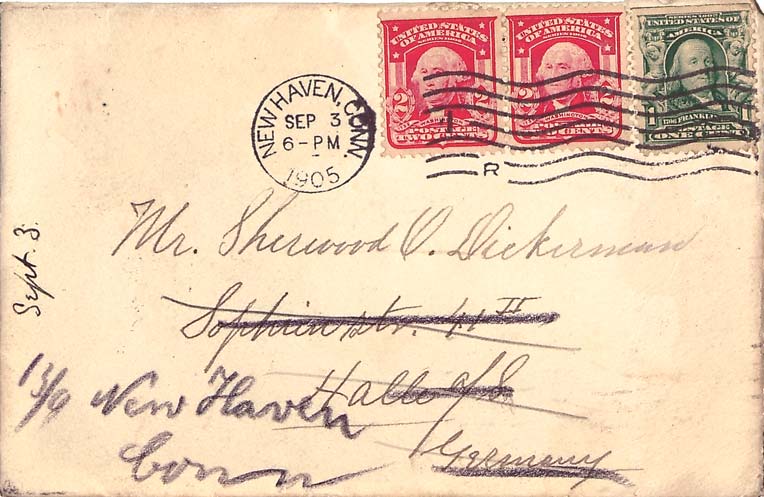 UNITED STATES
OF AMERICA
2 2
WASHINGTON
POSTAGE
TWO CENTS
UNITED STATES
OF AMERICA
2 2
WASHINGTON
POSTAGE
TWO CENTS
UNITED STATES OF
AMERICA
1 1
FRANKLIN
POSTAGE
ONE CENT
NEW HAVEN, CONN.
SEP 3
6-PM
1905
R
Mr. Sherwood O. Dickerman
Sophienstr. 41 II
Halle a/S
Germany
Sept. 3.
13/9 New Haven
Conn